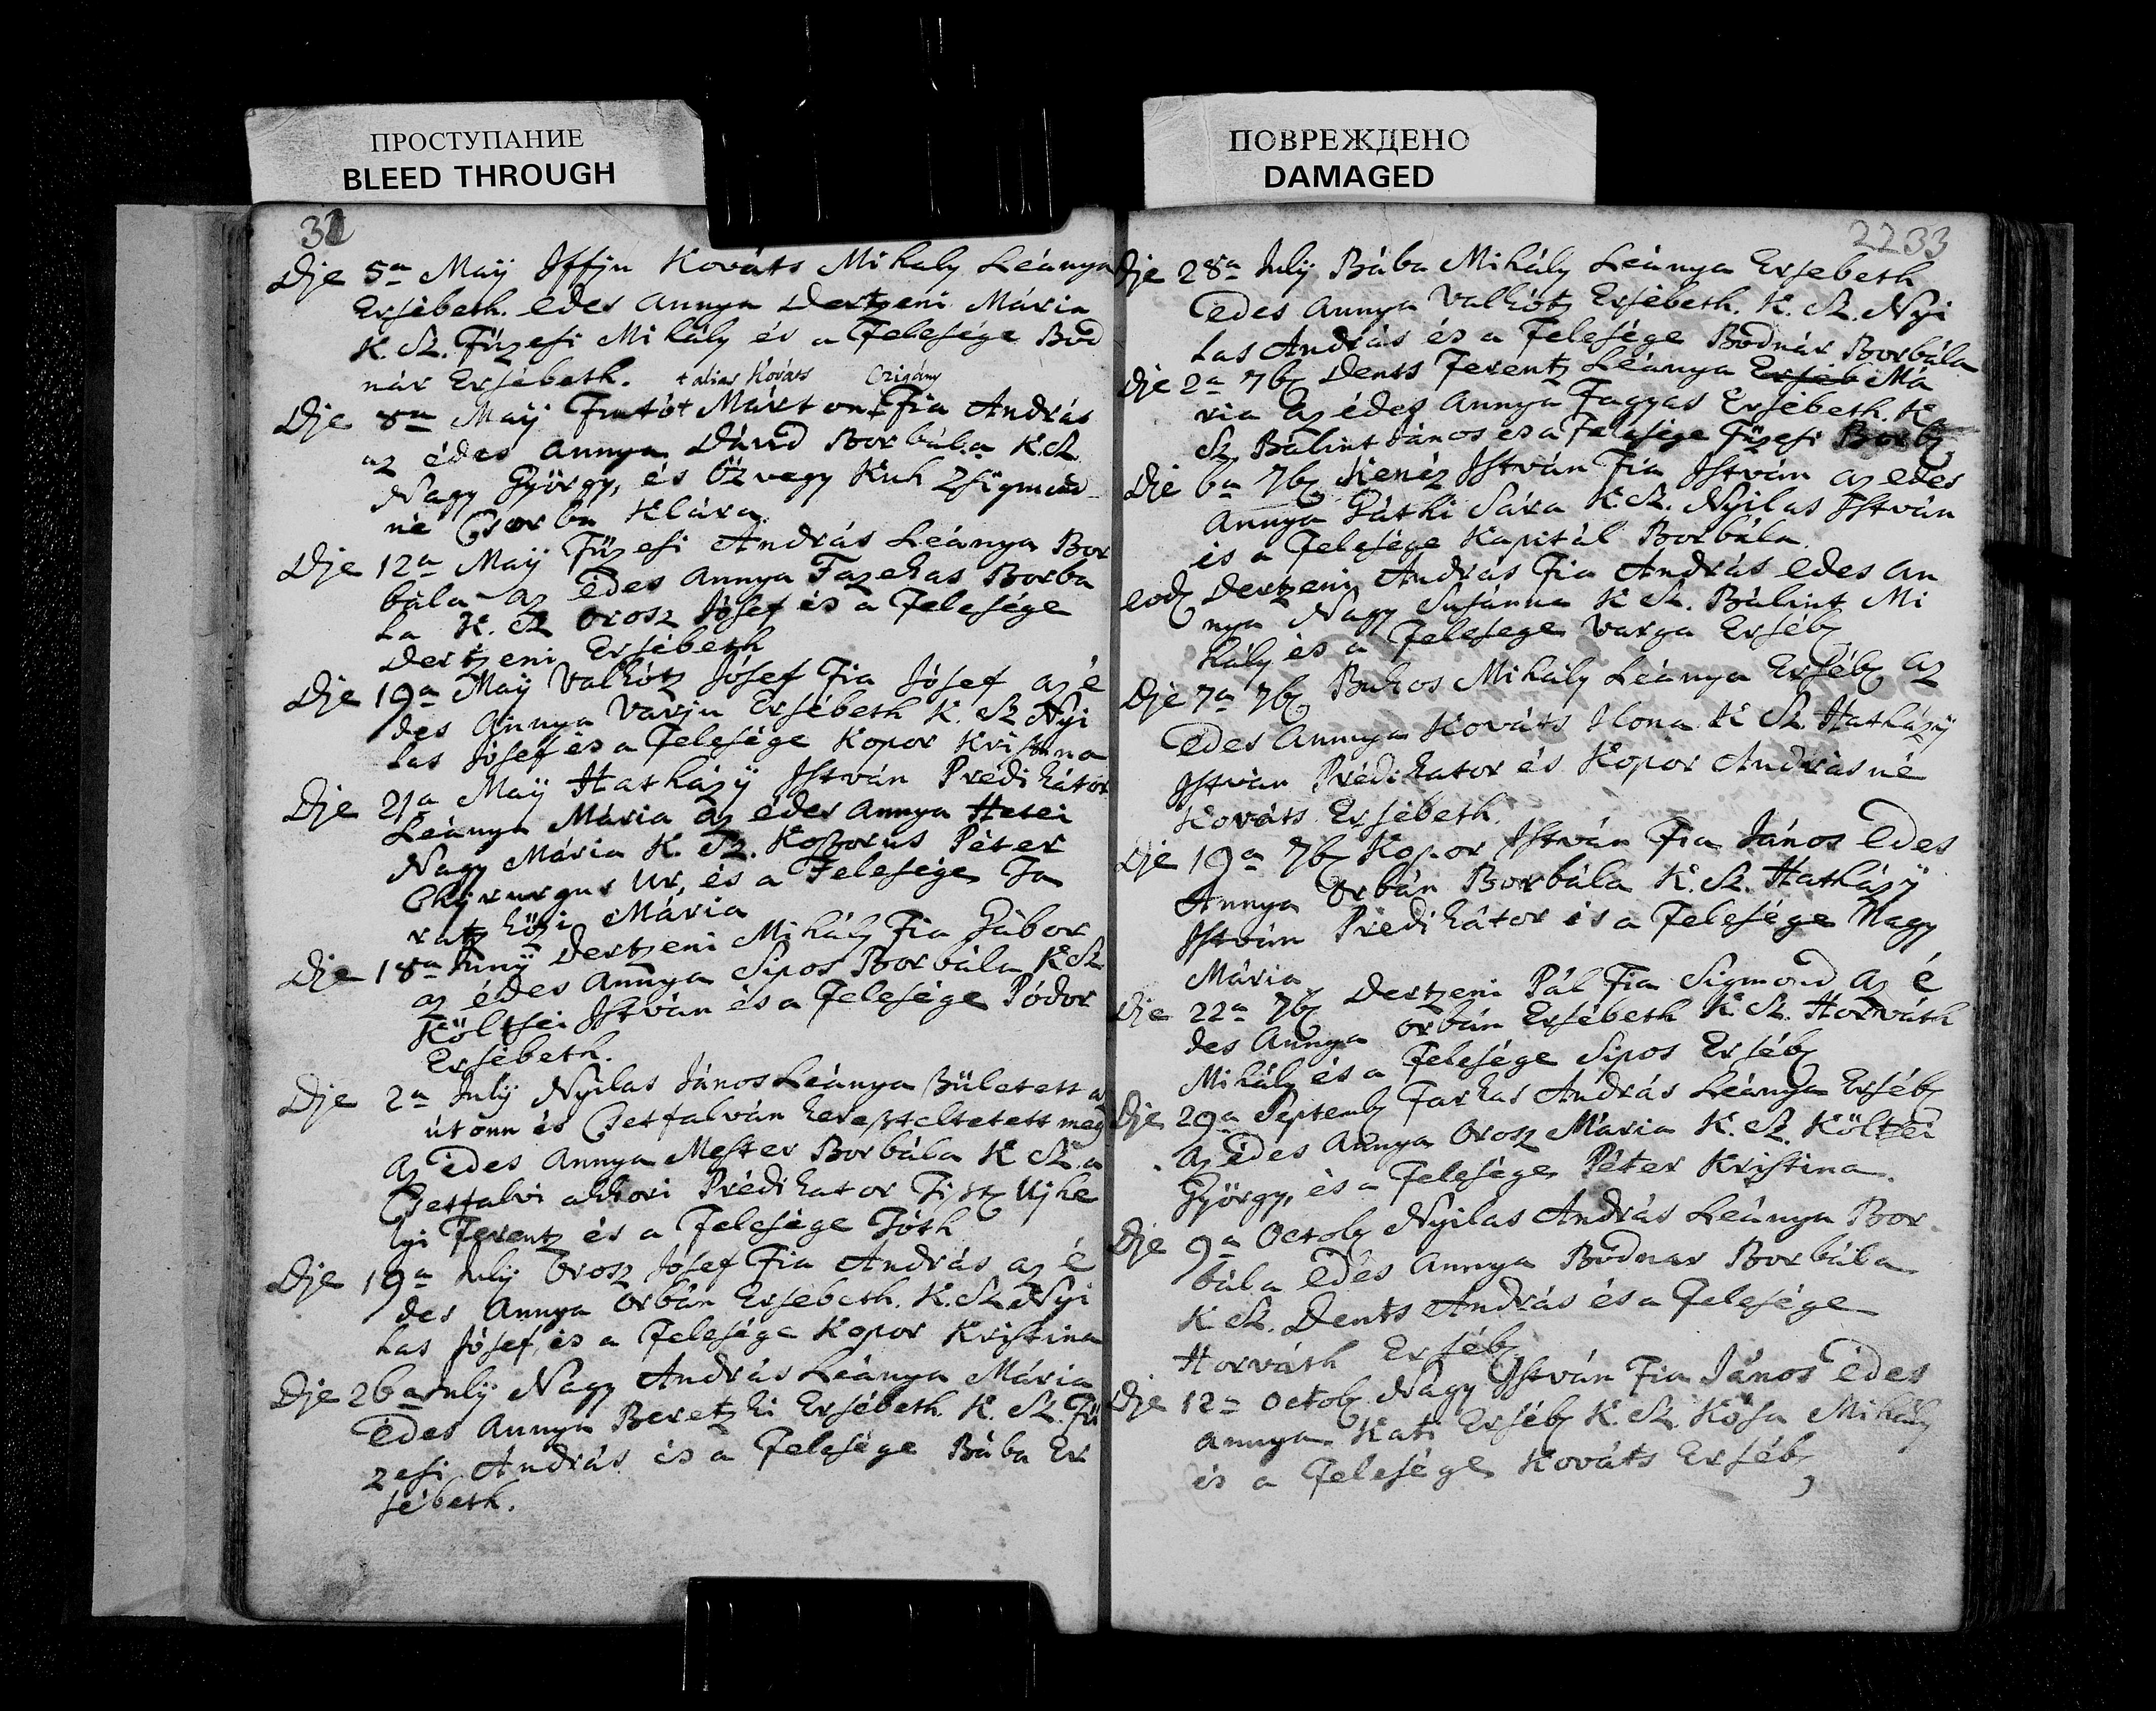 ПРОСТУПАНИЕ
BLEED THROUGH
ПОВРЕЖДЕНО
DAMAGED
32
Dje 5a Maÿ Iffju Kováts Mihaly Leánya
Ersébeth. edes Annya Dertzeni Mária
K. Sz. Füzesi Mihály és a Felesége Bod
nár Ersébeth. † alias Kováts Czigány
Dje 8a Maÿ Márton Fia András
az édes Annya Dávid Borbála K. Sz.
Nagy György, és Özvegy Kuh Zsigmond
né Csorba Klára
Dje 12a Maÿ Füzesi András Leánya Bor
bála az Edes Annya Fazekas Borba
la K. Sz Orosz Jósef és a Felesége
Dertzeni Ersébeth
Dje 19a Maÿ Valkótz Jósef Fia Jósef az é
des Annya Varju Ersébeth K. Sz Nyi
las Jósef és a Felesége Kopor Kristina
Dje 21a Maÿ Hatházÿ István Prédikátor
Leánya Mária az édes Annya Hetei
Nagy Mária K. Sz. Koszorus Péter
Chyrurgus Ur, és a Felesége Ta
ratzközi Mária
Dje 18a Junÿ Dertzeni Mihály Fia Gábor
az édes Annya Sipos Borbála K Sz
Költsei István és a Felesége Pódor
Ersébeth.
Dje 2a Julÿ Nyilas János Leánya Született az
úton és Csetfalván kereszteltetett meg
Az edes Annya Mester Borbála K Sz. a
Csetfalvi akkori Prédikator Tiszt. Ujhe
lyi Ferentz és a Felesége Tóth
Dje 19a Julÿ Orosz Jósef Fia András az é
des Annya Orbán Ersebeth. K. Sz Nyi
las Jósef, és a Felesége Kopor Kristina
Dje 26a Julÿ Nagy András Leánya Mária
Edes Annya Beretzki Ersébeth. K. Sz. Fü
zesi András és a Felesége Bába Er
sébeth.
2233
Dje 28a Julÿ Bába Mihály Leánya Ersebeth
Edes Annya Valkótz Ersébeth. K. Sz. Nyi
las András és a Felesége Bodnár Borbála
Dje 2a 7b Dents Ferentz Leánya Erséb Má
ria Az édes Annya Faggyas Ersébeth. K
Sz. Bálint János és a Felesége Füzesi Borb
Dje 6a 7b Kenéz István Fia István az edes
Annya Gáthi Sára K Sz. Nyilas István
és a Felesége Kapitál Borbála
eod Dertzeni András Fia András edes An
nya Nagy Susánna K Sz. Bálint Mi
hály és a Felesege Varga Erséb
Dje 7a 7b Bukos Mihály Leánya Erséb Az
Edes Annya Kováts Ilona K Sz Hatházÿ
István Prédikator és Kopor Andrásné
Kováts Ersébeth.
Dje 19a 7b Kopor István Fia János Edes
Annya Orbán Borbála K. Sz. Hatházÿ
István Predikátor és a Felesége Nagy
Mária
Dje 22a 7b Dertzeni Pál Fia Sigmond Az é
des Annya Orbán Ersébeth K. Sz. Horváth
Mihály és a Felesége Sipos Erséb
Dje 29a Septemb Farkas András Leánya Erséb
Az Edes Annya Orosz Mária K. Sz. Költsei
György, és a Felesége Péter Kristina.
Dje 9a Octob Nyilas András Leánya Bor
bála Edes Annya Bodnar Borbála
K Sz. Dents András és a Felesége
Horváth Erséb
Dje 12a Octob Nagy István Fia János edes
Annya Kati Erséb K. Sz Kósa Mihály
és a Felesége Kováts Erséb